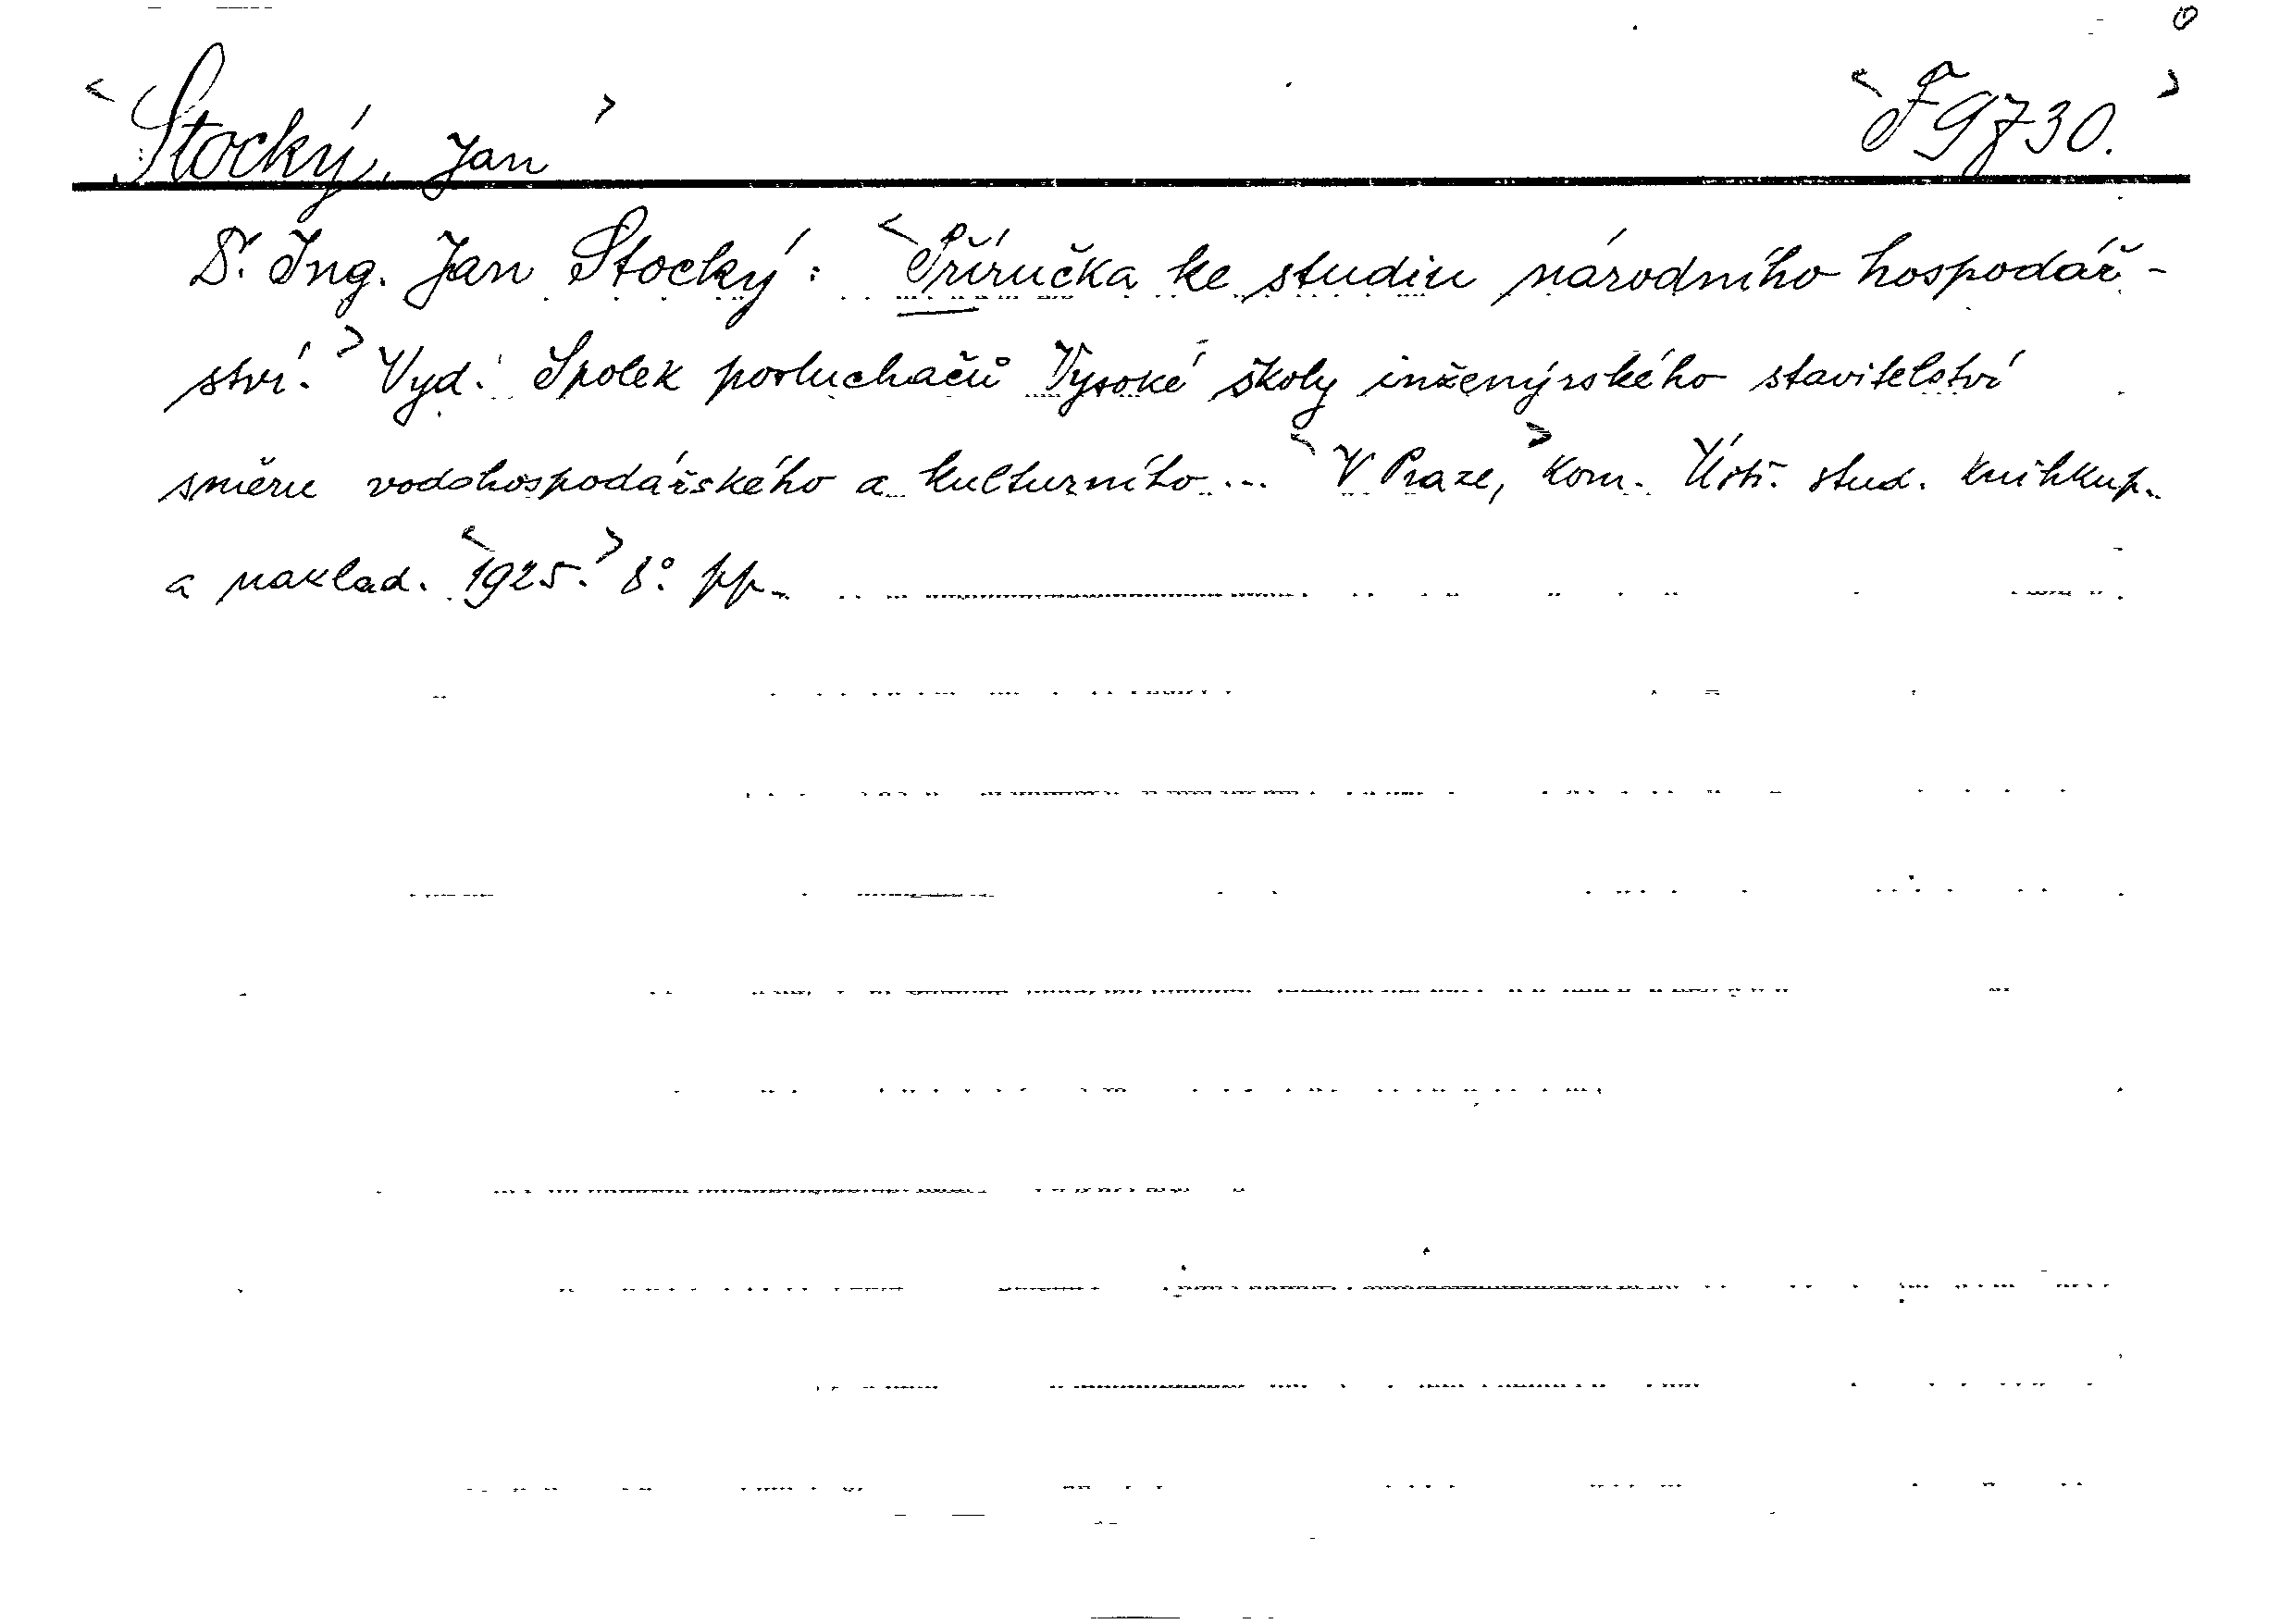 <Stocký, Jan> <F 9730.>
Dr. Ing. Jan Stocký: <Příručka ke studiu národního hospodář-
ství.> Vyd. Spolek posluchačů Vysoké školy inženýrského stavitelství
směru vodohospodářského a kulturního... <V Praze,> kom. Ústř. stud. knihkup.
a naklad. <1925.> 8°. pp.